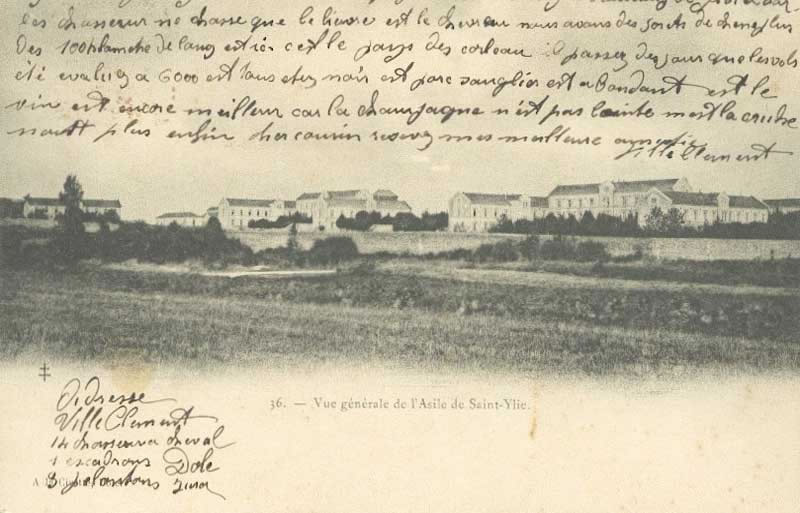 les chasseur ne chasse que le lievre est le chevreu nous avons des forets de chene plus
des 100 k lamche de long est ici cest le pays des corbeau il passez des jour que les vols
été evaluez a 6000 est tous chez nois est parc sanglier est abondant est le
vin est encore meilleur car la champagne n'est pas loin mest la cruche
nautt plus enfin cher cousin resevez mes meilleure amitie
Ville Clement
36. — Vue générale de l'Asile de Saint-Ylie.
Adresse
Ville Clement
14 chasseur a cheval
1 escadrons Dole
3 pelontons Jura